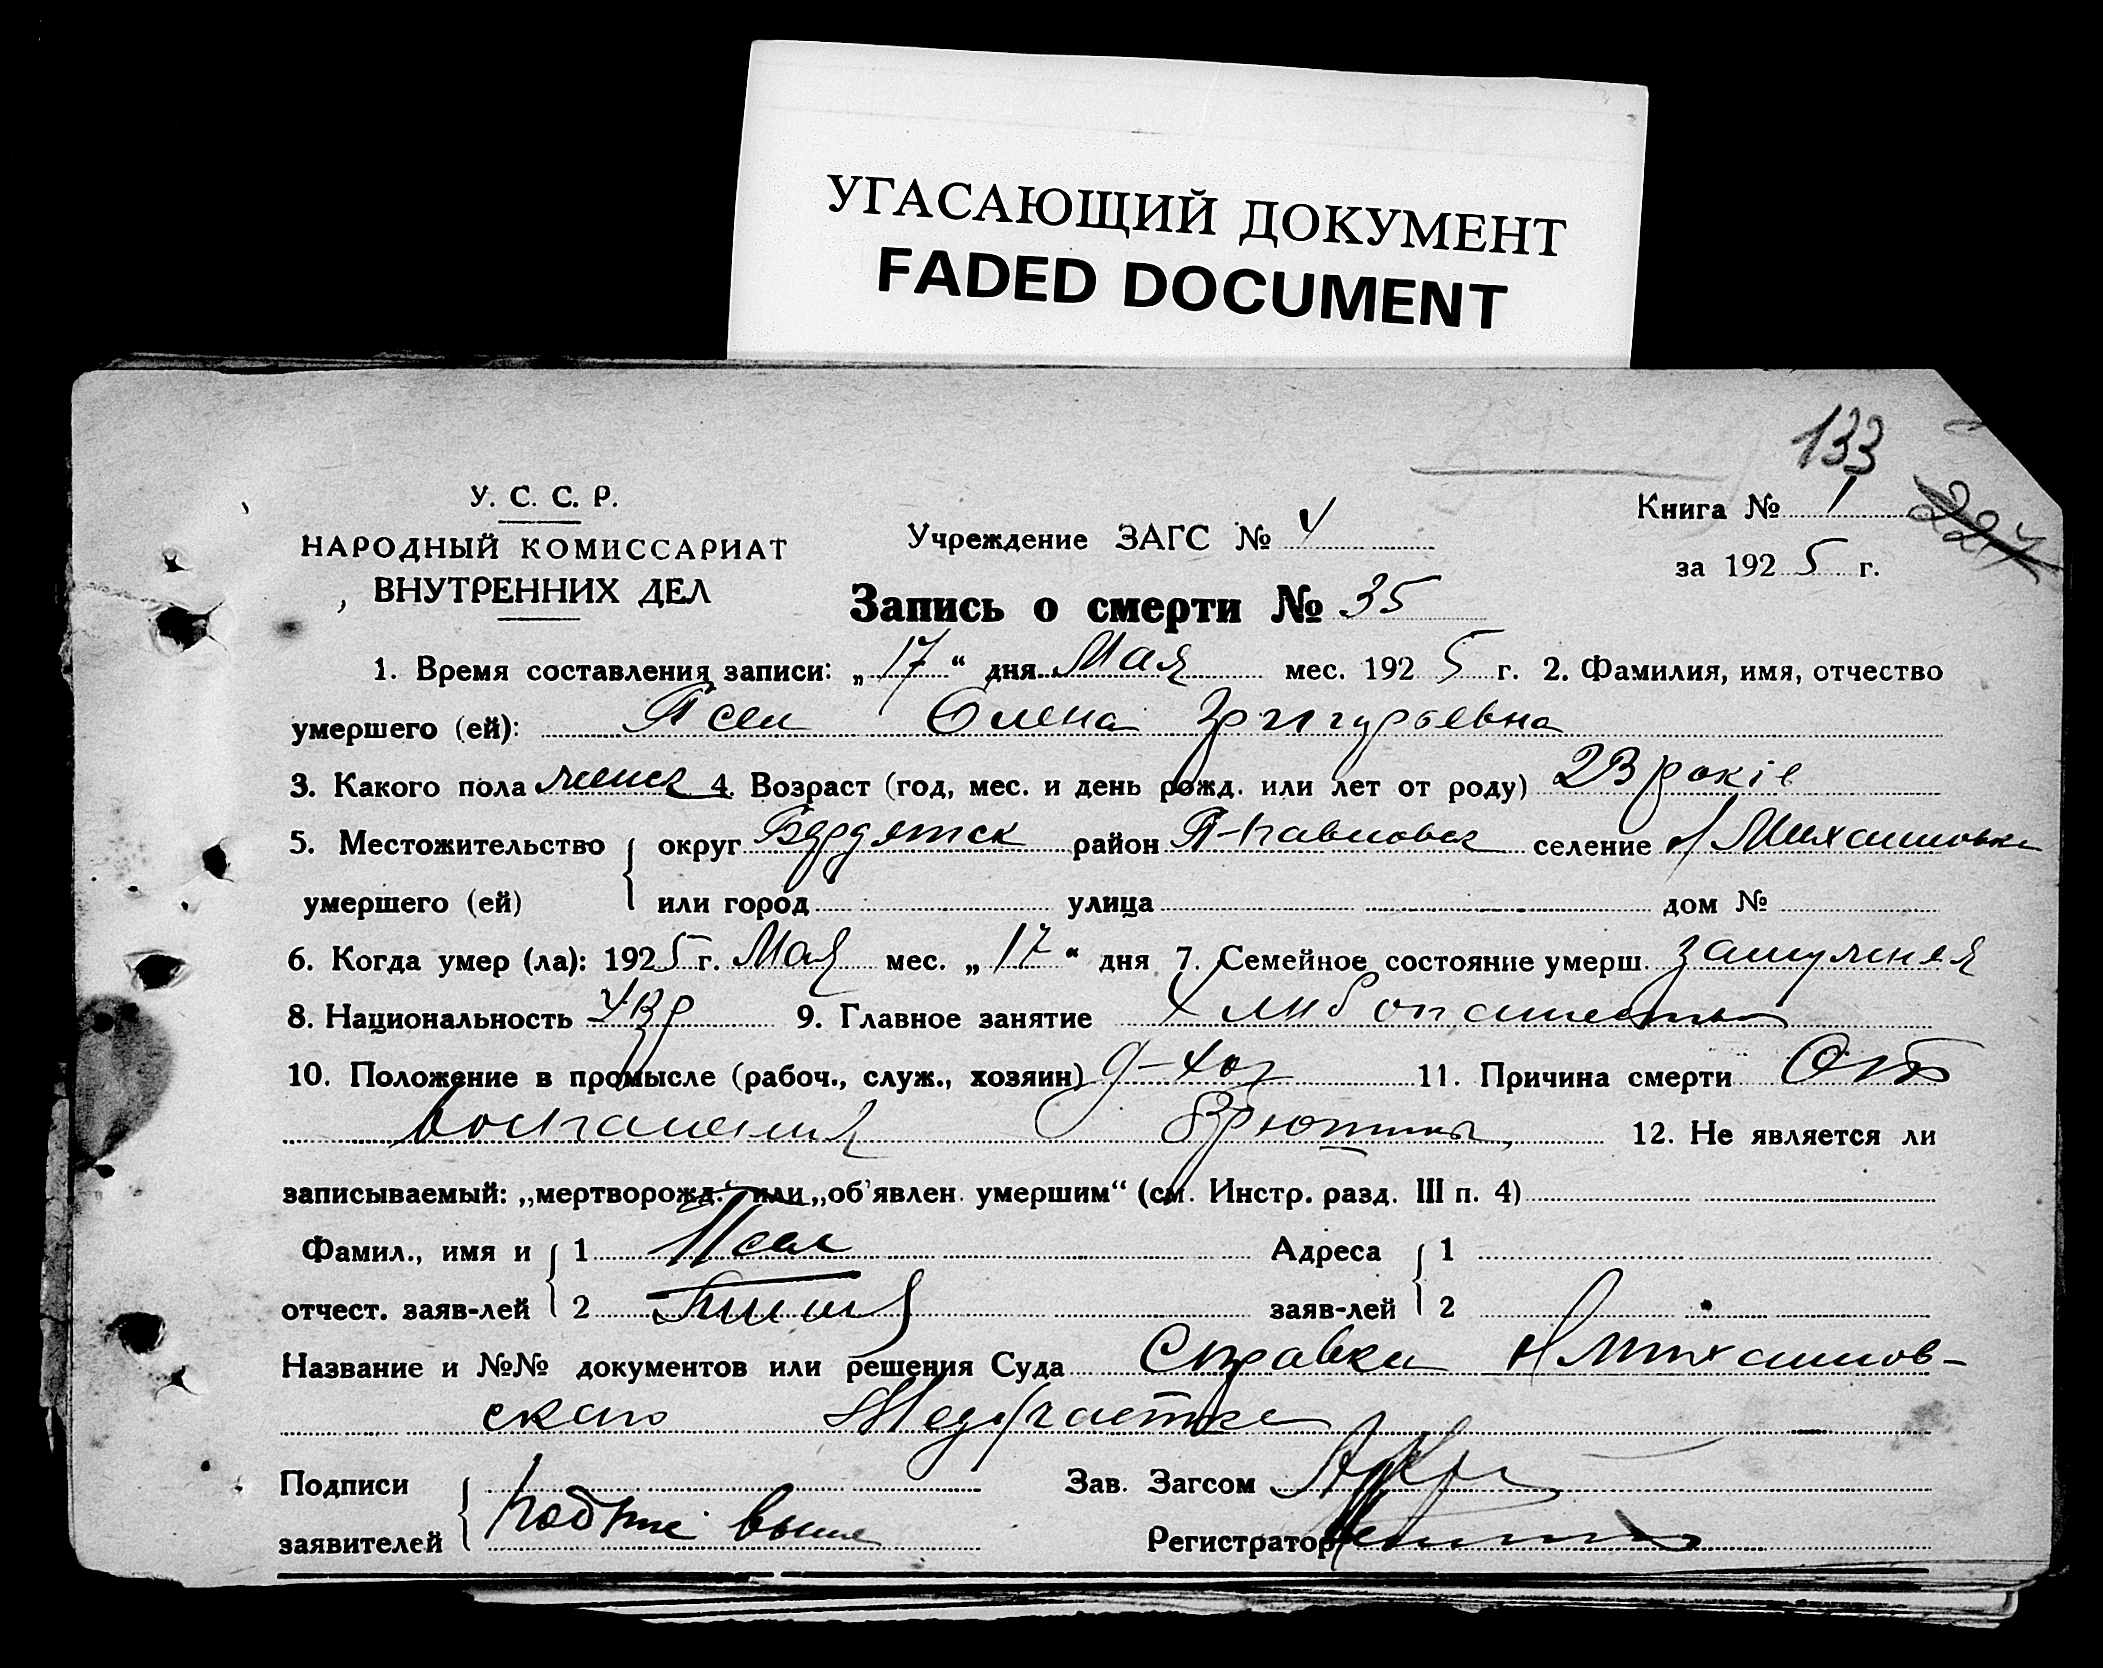 УГАСАЮЩИЙ ДОКУМЕНТ
FADED DOCUMENT
133
227
У. С. С. Р.
НАРОДНЫЙ КОМИССАРИАТ
ВНУТРЕННИХ ДЕЛ
Учреждение ЗАГС № 4
Книга № 1
за 1925 г.
Запись о смерти № 35
1. Время составления записи: „17“ дня Мая мес. 1925 г. 2. Фамилия, имя, отчество
умершего (ей): Псел Олена Григурьевна
3. Какого пола женск 4. Возраст (год, мес. и день рожд. или лет от роду) 23 років
5. Местожительство округ Бердянск район П-Павловск селение Михайловка
умершего (ей) или город улица дом №
6. Когда умер (ла): 1925 г. Мая мес. „17“ дня 7. Семейное состояние умерш. замужняя
8. Национальность Укр 9. Главное занятие
10. Положение в промысле (рабоч., служ., хозяин) 11. Причина смерти От
воспаления Брюшины, 12. Не является ли
записываемый: „мертворожд.“ или „об'явлен. умершим“ (см. Инстр. разд. III п. 4)
Фамил., имя и 1 Псел Адреса 1
отчест. заяв-лей 2 заяв-лей 2
Название и №№ документов или решения Суда Справка Н Михайлов-
ского Медучастка
Подписи Зав. Загсом
заявителей выше Регистратор